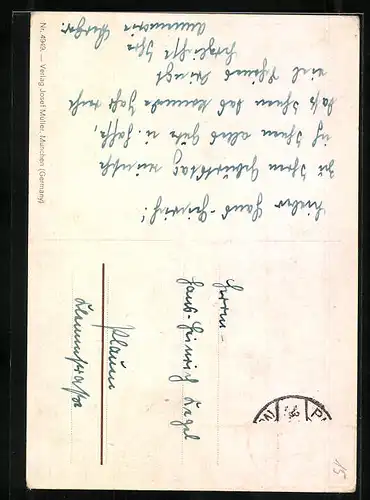 Lieber Hans-Heinrich!
Zu Ihrem Geburtstag wünsche
ich Ihnen alles Gute u. hoffe,
daß Ihnen das kommende Jahr recht
viel Schönes bringt.
Herzlichst Ihre
Annemarie
Herrn
Hans-Heinrich
Plauen
Nr. 4949. — Verlag Josef Müller, München (Germany)
15